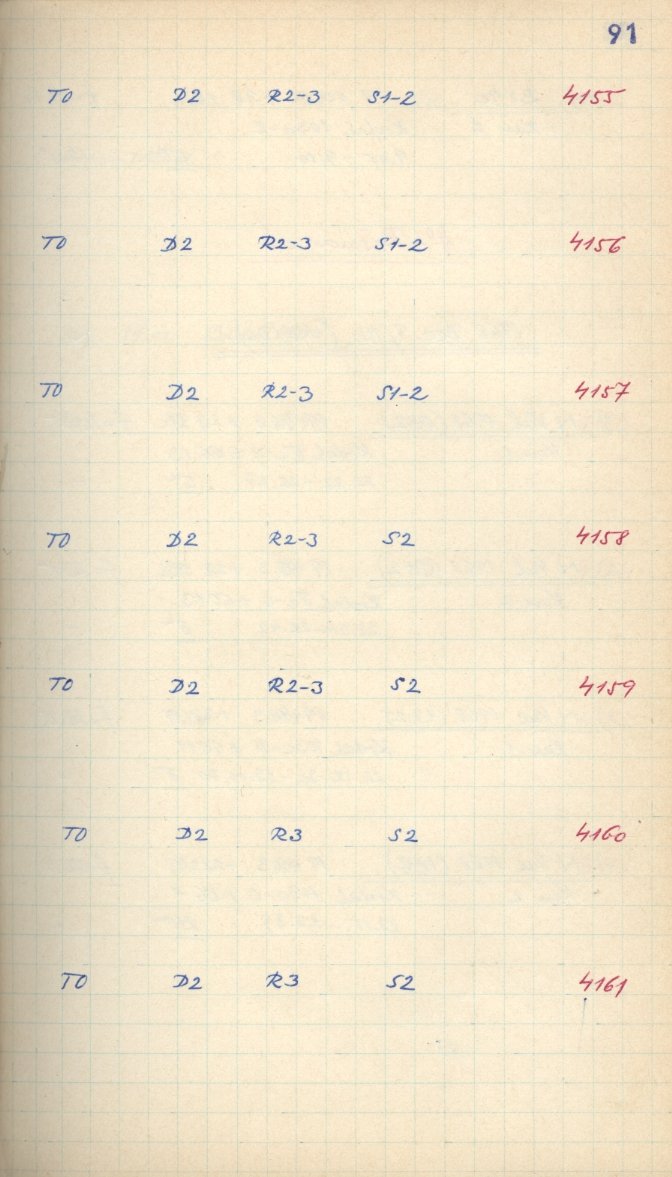 91
T0 D2 R2-3 S1-2 4155
T0 D2 R2-3 S1-2 4156
T0 D2 R2-3 S1-2 4157
T0 D2 R2-3 S2 4158
T0 D2 R2-3 S2 4159
T0 D2 R3 S2 4160
T0 D2 R3 S2 4161